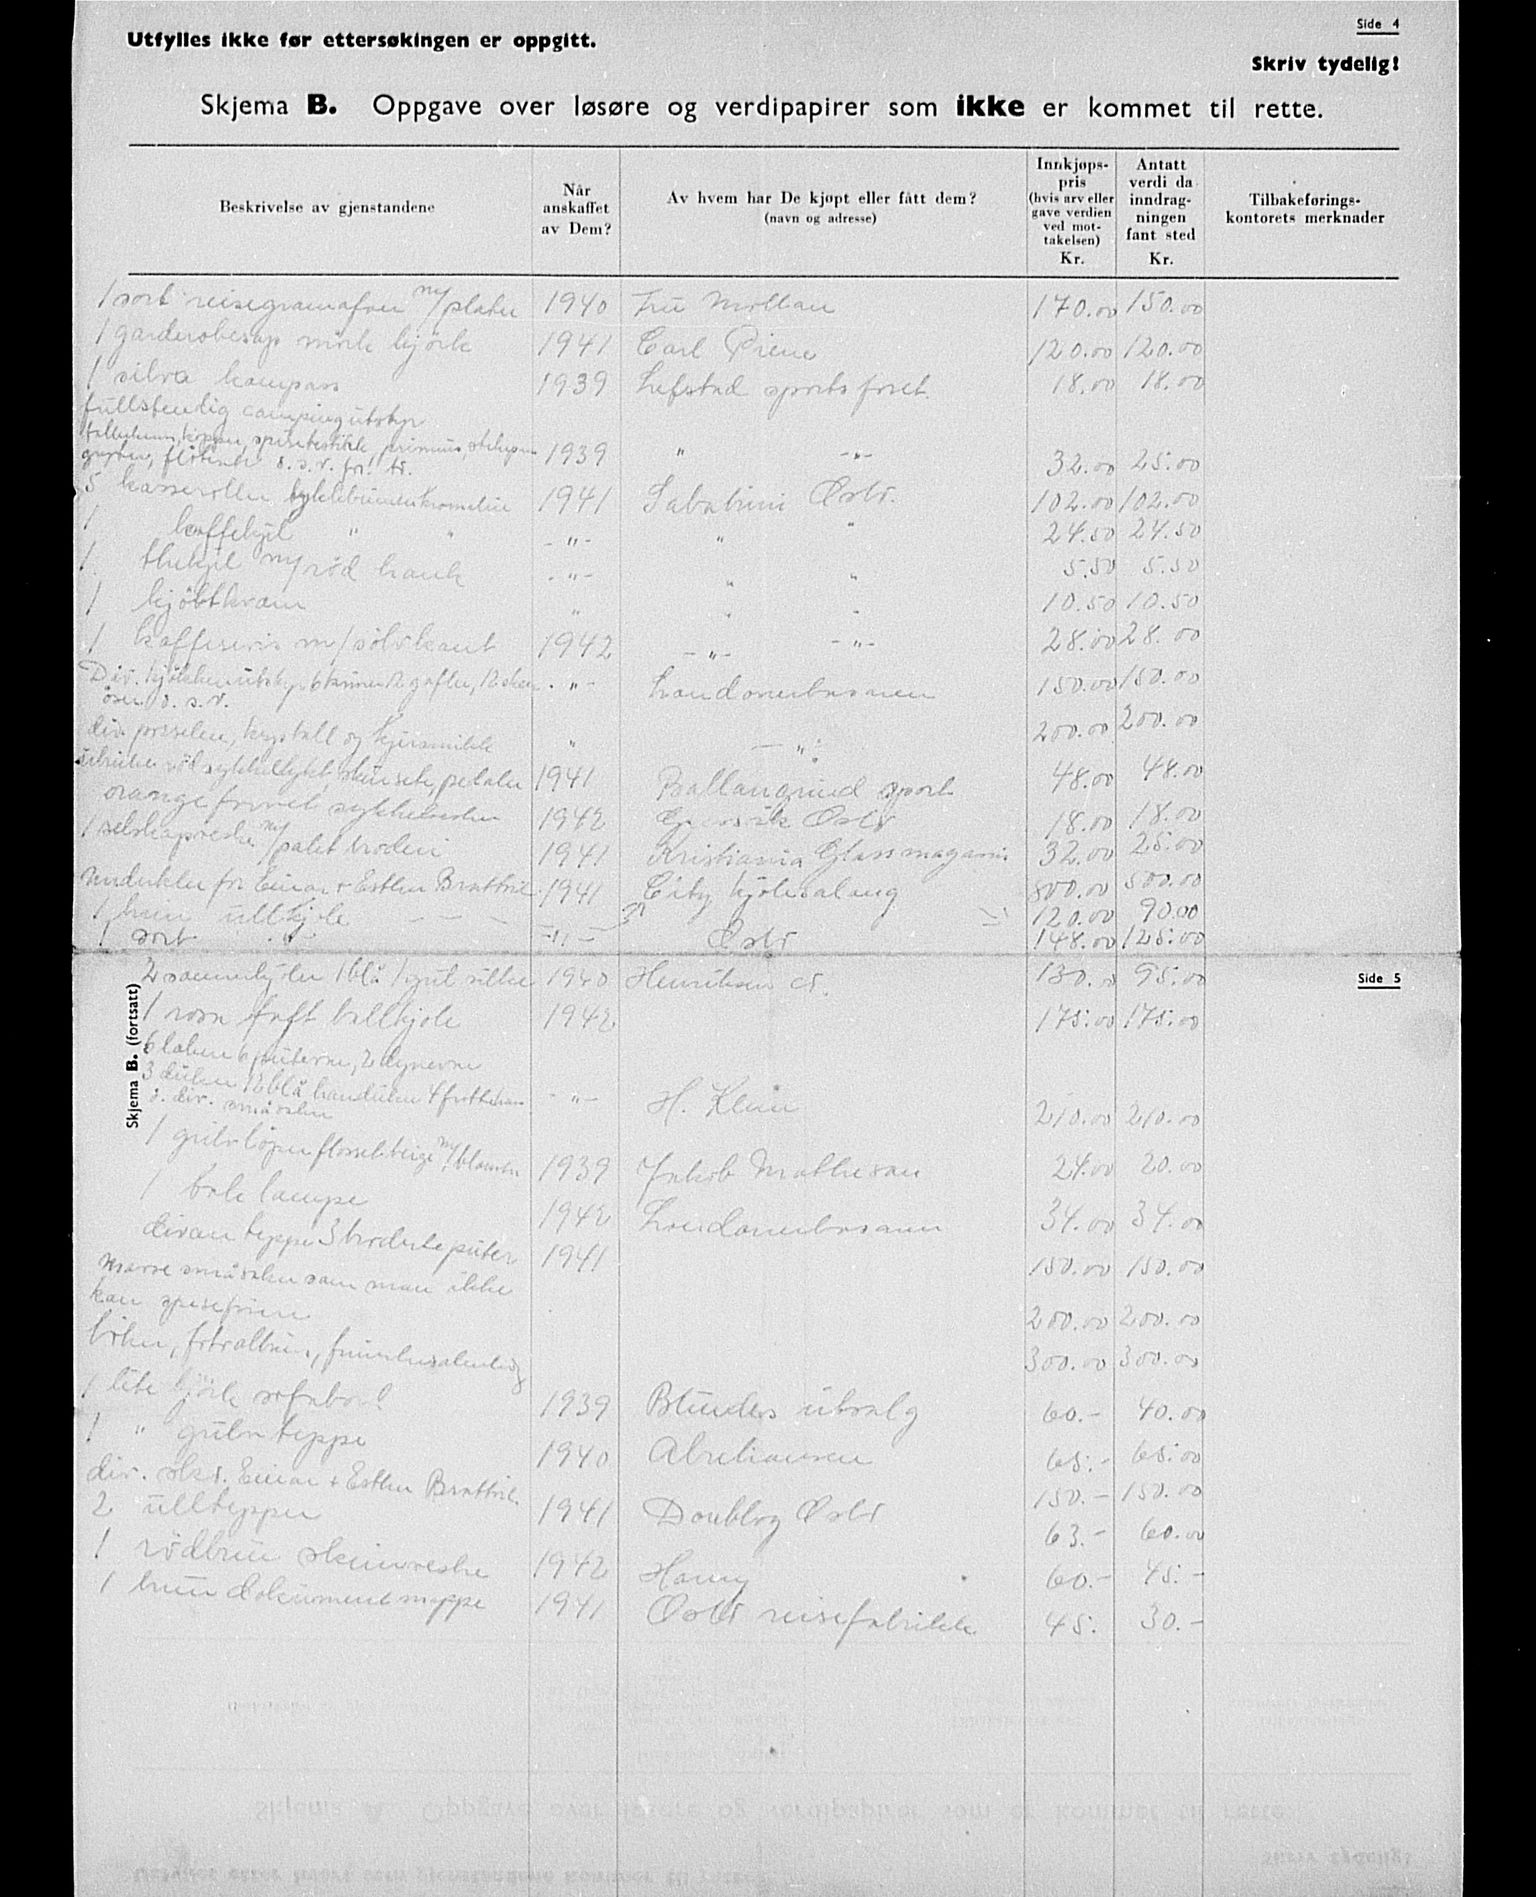 Side 4
Utfylles ikke før ettersøkingen er oppgitt.
Skriv tydelig!
Skjema B. Oppgave over løsøre og verdipapirer som ikke er kommet til rette.
Beskrivelse av gjenstandene
Når anskaffet av Dem?
Av hvem har De kjøpt eller fått dem? (navn og adresse)
Innkjøps-pris (hvis arv eller gave verdien ved mot-takelsen) Kr.
Antatt verdi da inndrag-ningen fant sted Kr.
Tilbakeførings-kontorets merknader
1 sort reisegramafon m/plater 1940 Fru Mollan 170.00 150.00
1 garderobesap mørk bjørk 1941 Carl Piene 120.00 120.00
1 silva kompass 1939 Lefstad sportsforet. 18.00 18.00
fullstendig campingutstyr
kopper, primus, 1939 " -"- 32.00 25.00
o.s.v. for
5 kasseroller 1941 Sabatini Oslo. 102.00 102.00
1 kaffekjel " " -"- " " 24.50 24.50
1 thekjel m/rød hank -"- " " 5.50 5.50
1 kjøttkvarn " " " 10.50 10.50
1 kaffeservis m/sølvkant 1942 -"- -"- 28.00 28.00
Div. kjøkkenutstyr 6 kniver 12 gafler, 12 skjeer -"- Londonerbasaren 150.00 150.00
øser o.s.v.
div. porselen, krystall og " -"- 200.00 200.00
rød sykkellykt, skinnsete, pedaler 1941 Ballangrud sport 48.00 48.00
orange fornet 1942 Gresvik Oslo 18.00 18.00
1 selskapsveske m/ 1941 Kristiania Glassmagasin 32.00 25.00
Underklær for Einar + Esther Brattvik. 1941 City kjolesalong 500.00 500.00
1 brun ullkjole 120.00 90.00
1 sort " -"- Oslo 148.00 125.00
Side 5
Skjema B. (fortsatt)
2 sommerkjoler 1 blå 1 gul silke 1940 Henriksen 130.00 95.00
1 rosa taft ballkjole 1942 175.00 175.00
6 laken 6 putevar, 2 dynevar
3 duker 12 blå handuker 4 frotthan. -"- H. Klein 210.00 210.00
o. div. småsaker
1 gulvløper m/blomster 1939 Jakob Mathesan 24.00 20.00
1 bak lampe 1942 Londonerbasaren 34.00 34.00
divan teppe 3 broderte puter 1941 150.00 150.00
Masse småsaker som man ikke
kan spesefisere 200.00 200.00
bøker, fotoalbum, 300.00 300.00
1 lite bjørk sofabord 1939 Blindes utvalg 60.- 40.00
1 " gulv teppe 1940 Abrahamsen 65.- 65.00
div. sko. Einar + Esther Brattvik. 150.- 150.00
2 ulltepper 1941 Doublog Oslo 63.- 60.00
1 rødbrun skinnveske 1942 60.- 45.-
1 brun dokumentmappe 1941 Oslo reisefabrikk. 45. 30.-